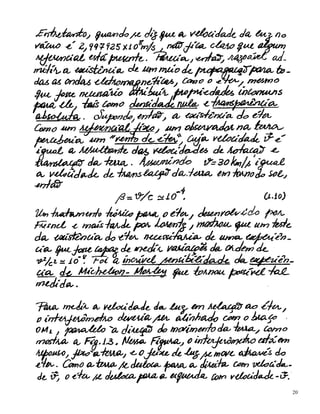 Entretanto, quando se diz que a velocidade da luz no
vácuo é 2,997925x10⁸m/s, não fica claro que algum
referencial está presente. Parecia, então, razoável ad-
mitir a existência de um meio de propagação para to-
das as ondas eletromagnéticas, como o éter, mesmo
que fosse necessário atribuir propriedades incomuns
para ele, tais como densidade nula e transparência
absoluta. Supondo, então, a existência do éter
como um referencial fixo, um observador na terra
perceberia um "vento de éter", cuja velocidade v é
igual a resultante das velocidades de rotação e
translação da terra. Assumindo v≃30km/s, igual
a velocidade de translação da terra em torno do sol,
então
β=v/c ≃10⁻⁴. (1.10)
Um tratamento teórico para o éter, desenvolvido por
Fresnel e mais tarde por Lorentz, mostrou que um teste
da existência do éter necessitaria de uma experiên-
cia que fosse capaz de medir variações da ordem de
Foi a incrível sensibilidade da experiên-
cia de Michelson-Morley que tornou possível tal
medida.
Para medir a velocidade da luz em relação ao éter,
o interferômetro deveria ser alinhado com o braço
OM₁, paralelo a direção do movimento da terra, como
mostra a Fig. 1.3. Nessa Figura, o interferômetro está em
repouso, fixo a terra, e o feixe de luz se move através do
éter. Como a terra se desloca para a direita com velocida-
de v, o éter se desloca para a esquerda com velocidade -v.
20